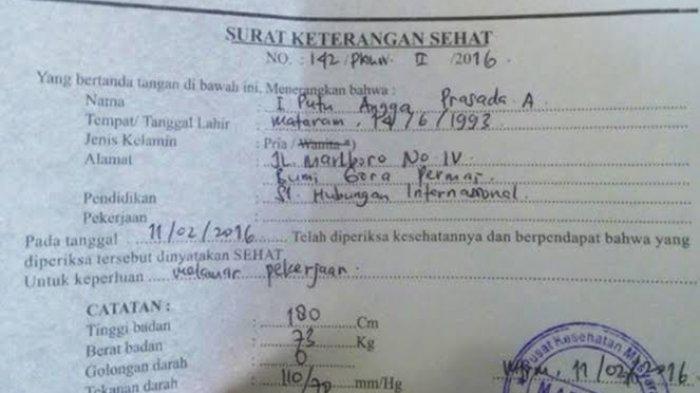 SURAT KETERANGAN SEHAT
NO. : 142 / Pkuw. II /2016.
Yang bertanda tangan di bawah ini, Menerangkan bahwa :
Nama : I Putu Angga Prasada A
Tempat/ Tanggal Lahir : Mataram, 14/6/1993
Jenis Kelamin : Pria / Wanita *)
Alamat : JL. Marlboro No IV
Bumi Gora Permai.
Pendidikan : S1. Hubungan Internasional.
Pekerjaan :
Pada tanggal : 11/02/2016 Telah diperiksa kesehatannya dan berpendapat bahwa yang
diperiksa tersebut dinyatakan SEHAT
Untuk keperluan melamar pekerjaan.
CATATAN :
Tinggi badan : 180 Cm
Berat badan : 73 Kg
Golongan darah : O
Tekanan darah : 110/70 mm/Hg
Pusat Kesehatan Masyara
11/02/2016